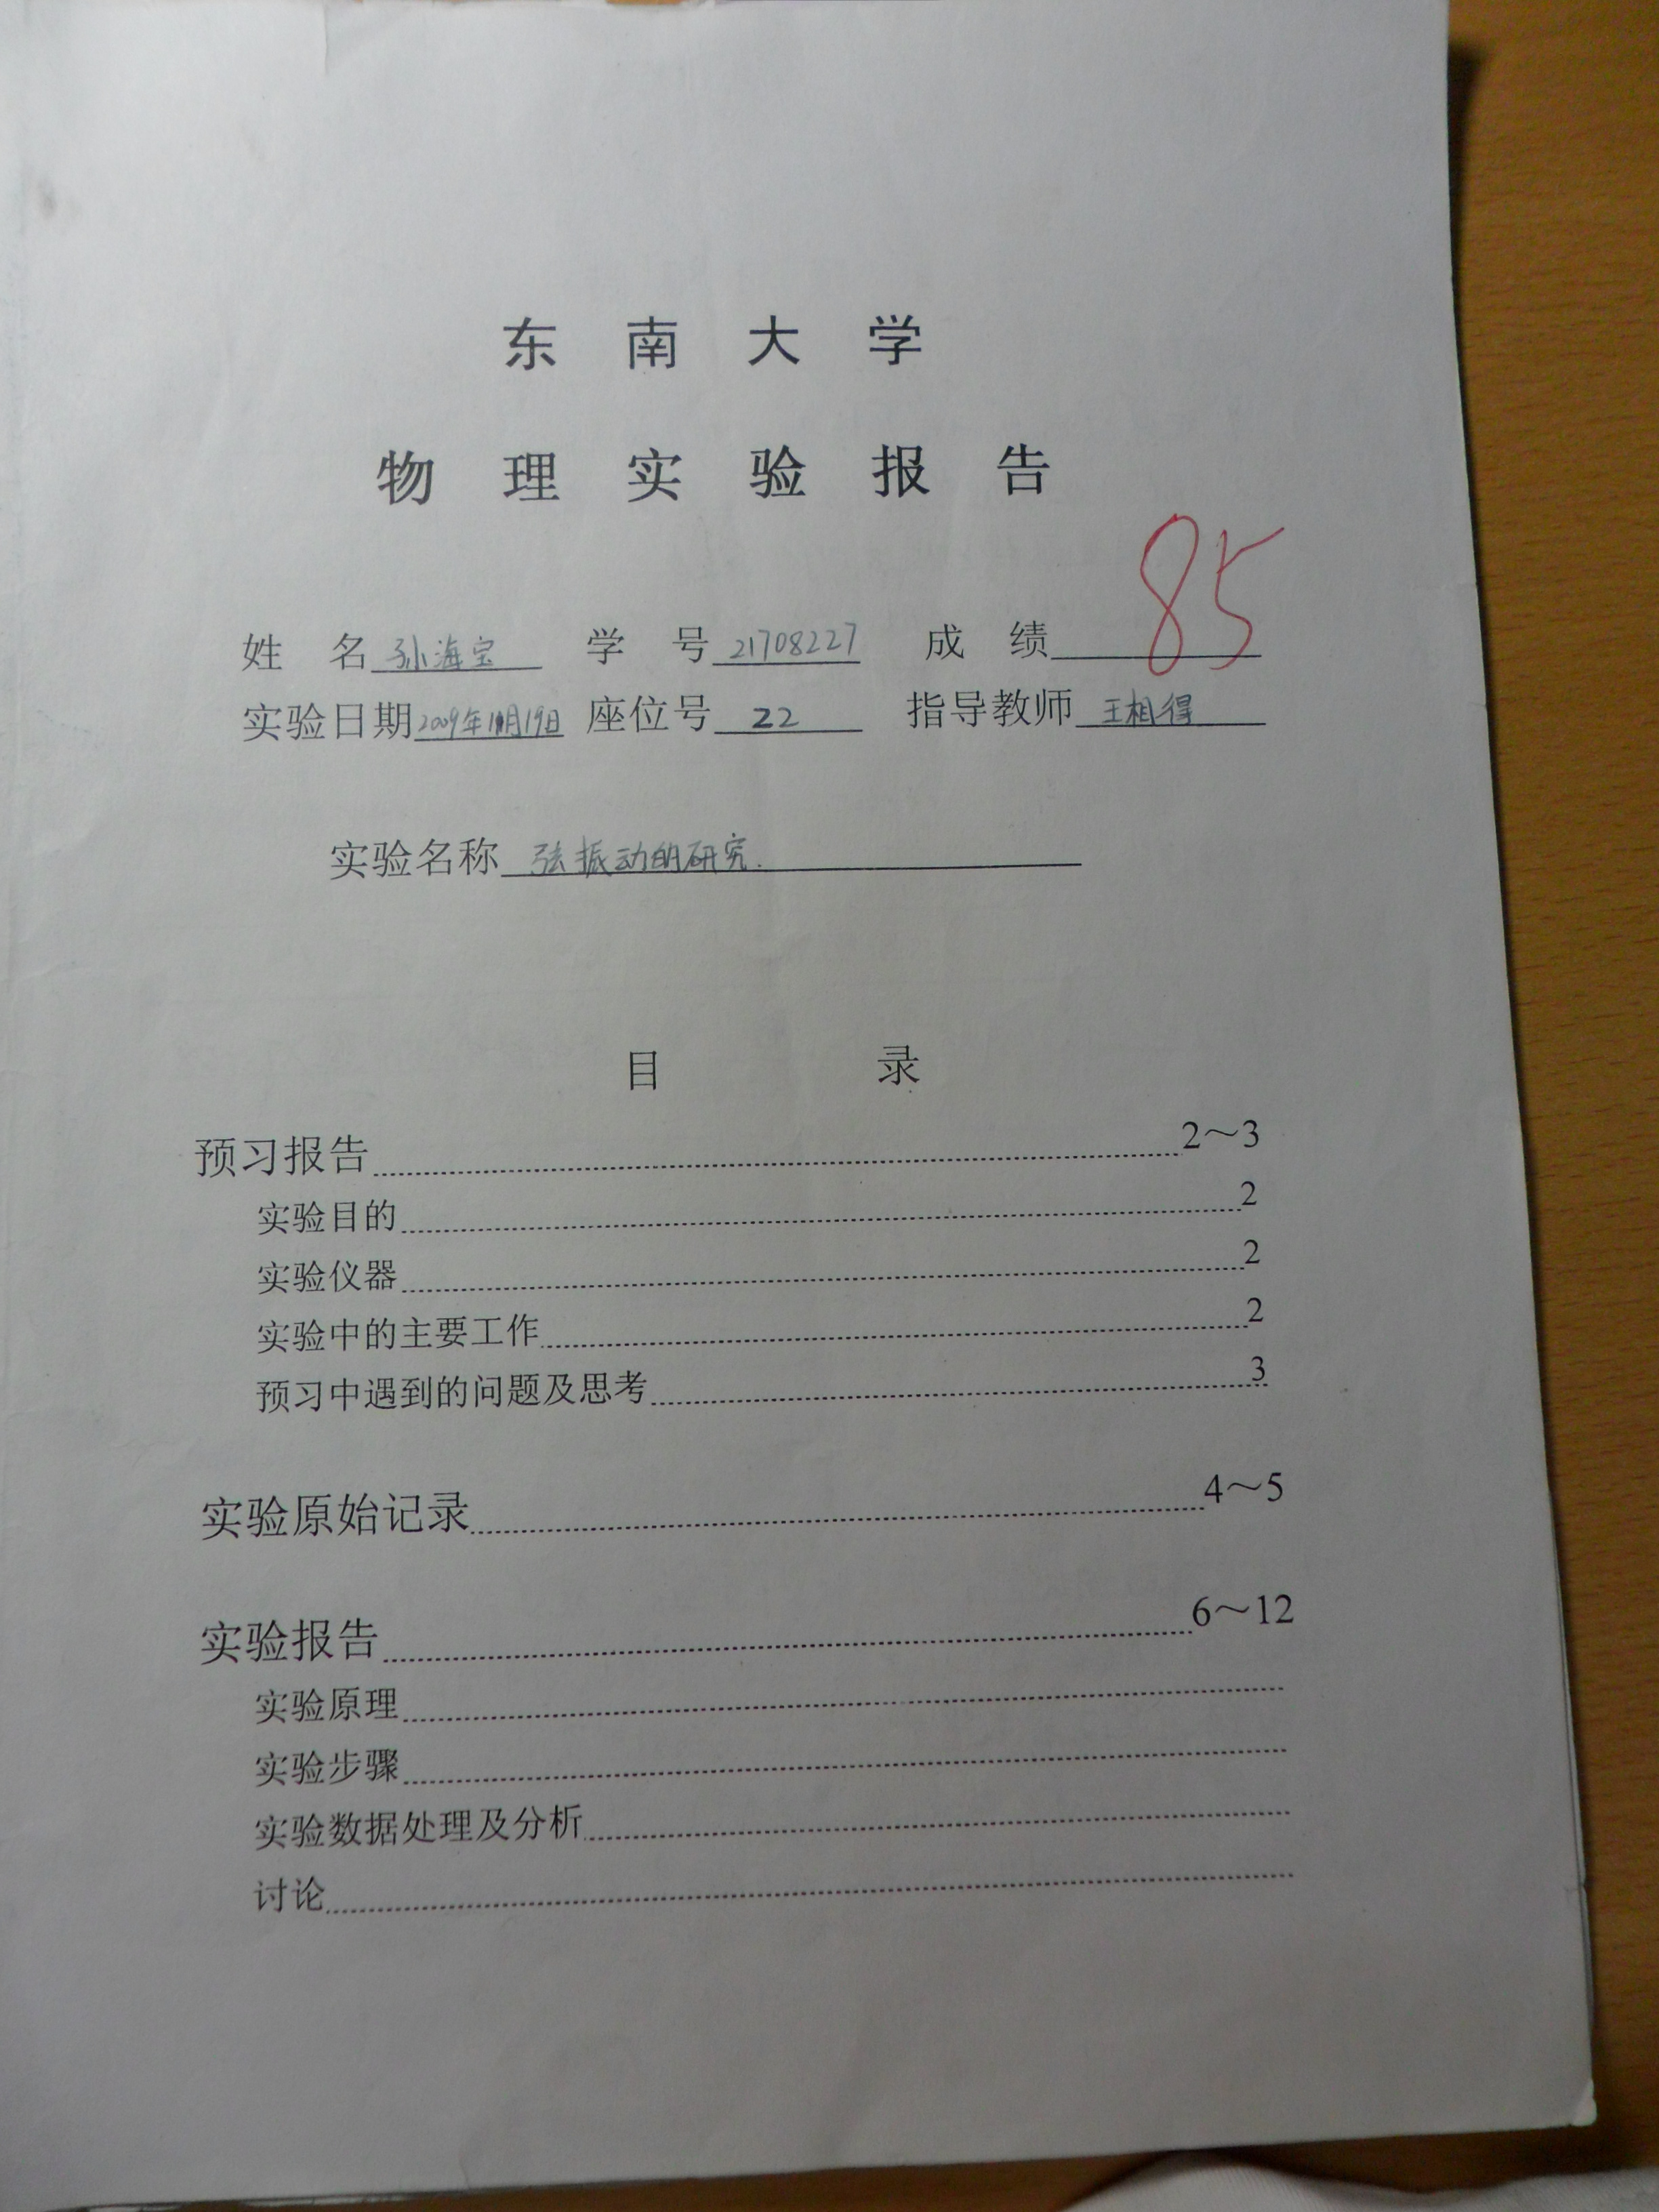 东南大学
物理实验报告
85
姓名 孙海宝 学号 21708227 成绩
实验日期 2009年 月19日 座位号 22 指导教师 王相得
实验名称 弦振动的研究.
目录
预习报告 2～3
实验目的 2
实验仪器 2
实验中的主要工作 2
预习中遇到的问题及思考 3
实验原始记录 4～5
实验报告 6～12
实验原理
实验步骤
实验数据处理及分析
讨论